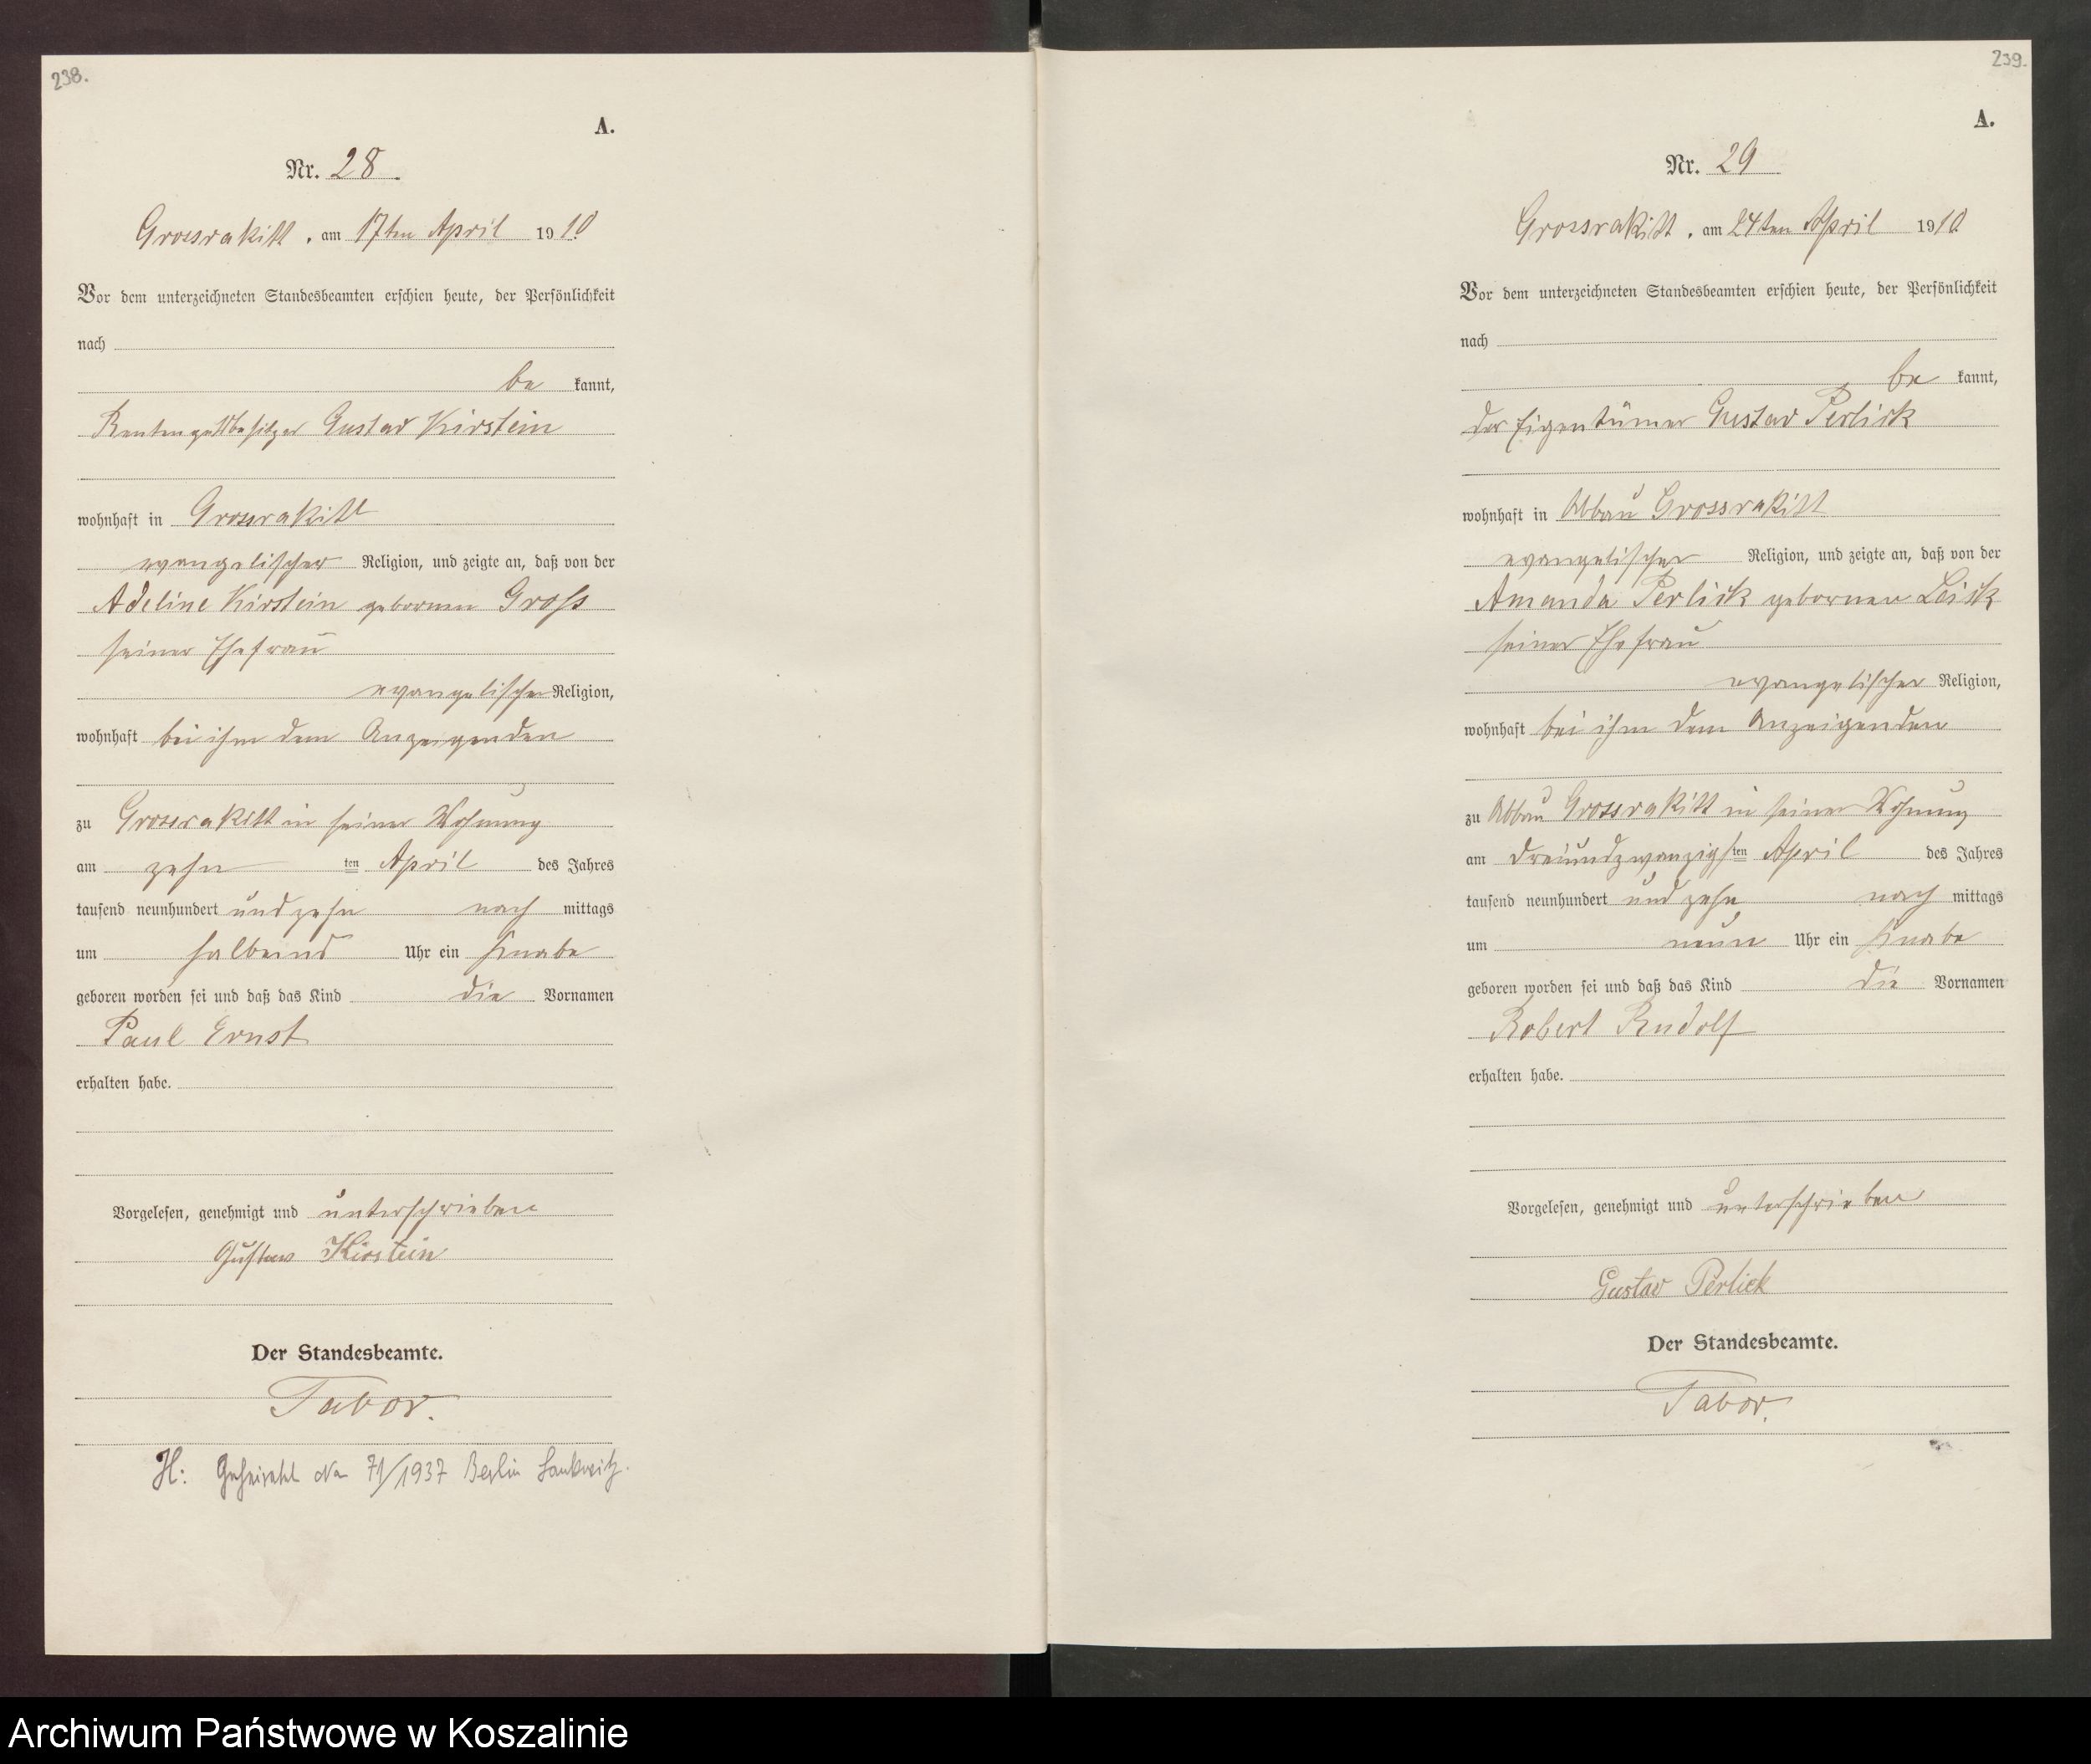 238.
A.
Nr. 28.
Grossrakitt, am 17ten April 1910
Vor dem unterzeichneten Standesbeamten erschien heute, der Persönlichkeit
nach
be kannt,
Rentengutsbesitzer Gustav Kirstein
wohnhaft in Grossrakitt
evangelischer Religion, und zeigte an, daß von der
Adeline Kirstein geborenen Groß
seiner Ehefrau
evangelischer Religion,
wohnhaft bei ihm dem Anzeigenden
zu Grossrakitt in seiner Wohnung
am zehn ten April des Jahres
tausend neunhundert und zehn nach mittags
um halbeins Uhr ein Knabe
geboren worden sei und daß das Kind die Vornamen
Paul Ernst
erhalten habe.
Vorgelesen, genehmigt und unterschrieben
Gustav Kirstein
Der Standesbeamte.
Tabor.
H: Geheiratet No 71/1937 Berlin Lankwitz.
239.
A.
Nr. 29
Grossrakitt, am 24ten April 1910
Vor dem unterzeichneten Standesbeamten erschien heute, der Persönlichkeit
nach
be kannt,
der Eigentümer Gustav Perlick
wohnhaft in Abbau Grossrakitt
evangelischer Religion, und zeigte an, daß von der
Amanda Perlick geborenen Leick
seiner Ehefrau
evangelischer Religion,
wohnhaft bei ihm dem Anzeigenden
zu Abbau Grossrakitt in seiner Wohnung
am dreiundzwanzigsten April des Jahres
tausend neunhundert und zehn nach mittags
um neun Uhr ein Knabe
geboren worden sei und daß das Kind die Vornamen
Robert Rudolf
erhalten habe.
Vorgelesen, genehmigt und unterschrieben
Gustav Perlick
Der Standesbeamte.
Tabor.
Archiwum Państwowe w Koszalinie